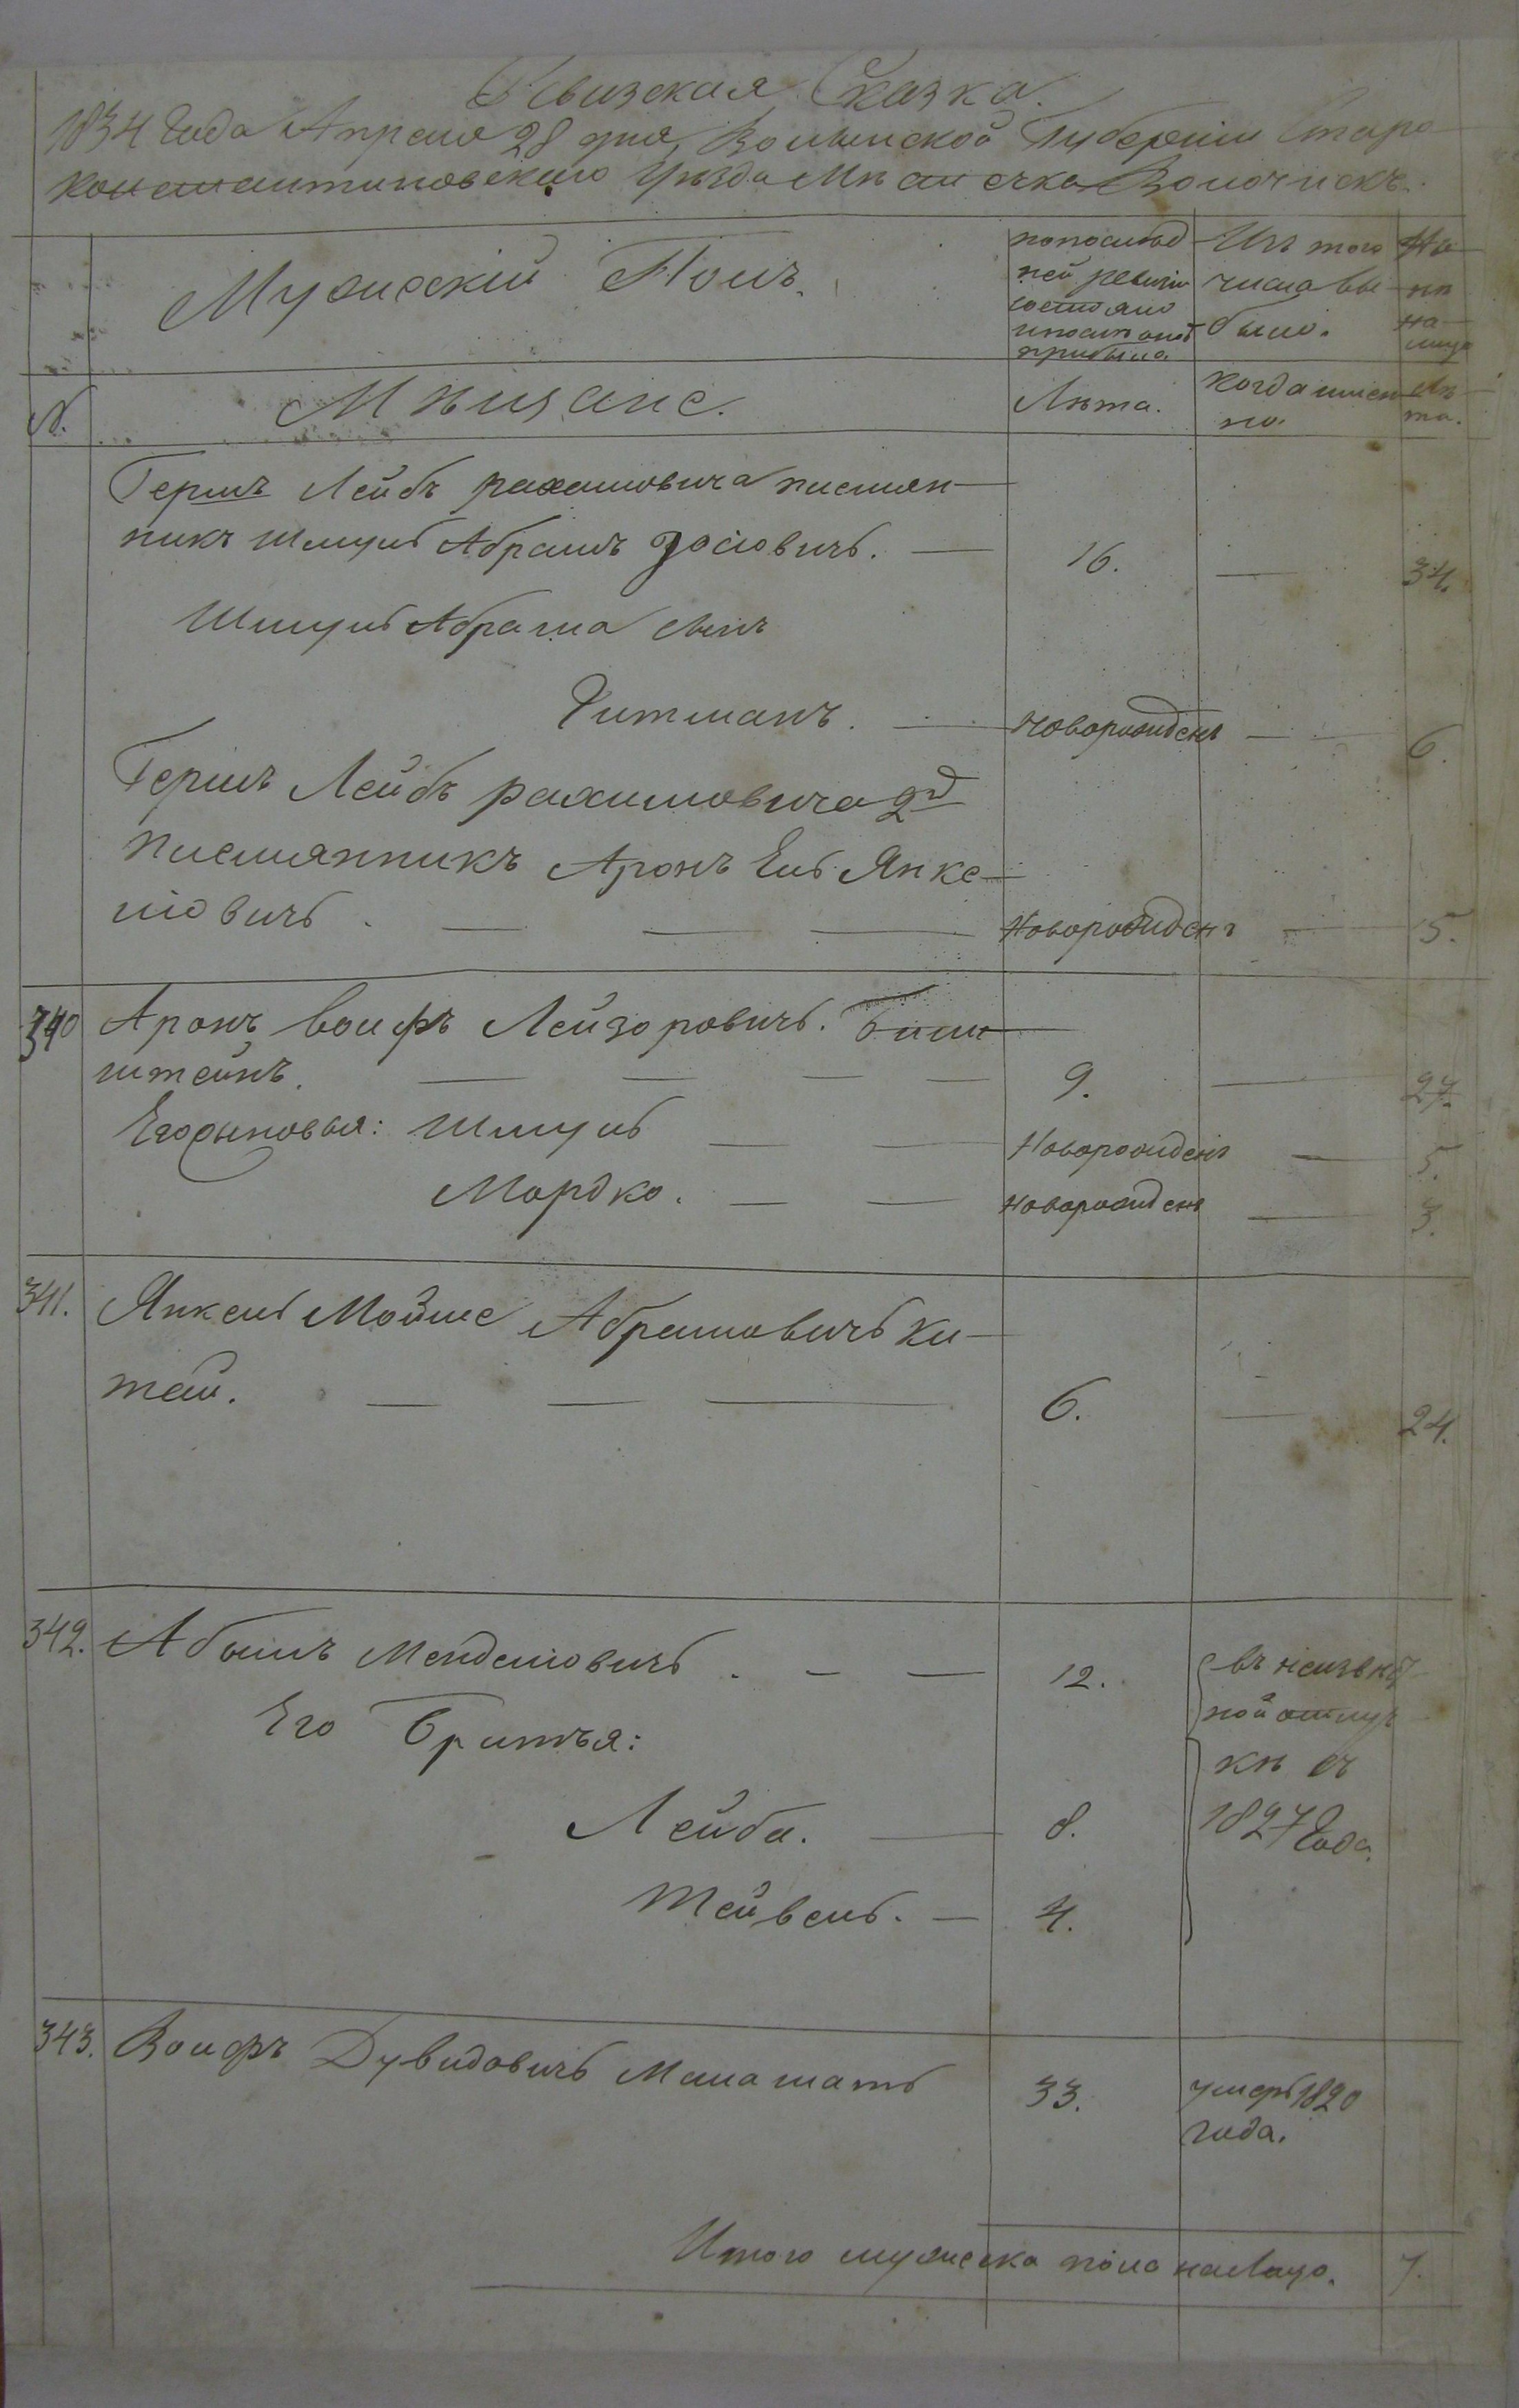 Ревизская Сказка.
1834 Года Апреля 28 дня, Волынской Губерніи Старо
константиновского Уѣзда Мѣстечка Волочискъ.
Мужескій Полъ.
по послѣд
ней ревизіи
состояло
и послѣ оной
прибыло.
Изъ того
числа вы
было.
Ны
нѣ
на
лицо
№.
Мѣщане.
Лѣта.
Когда имен
но.
Лѣ
та.
Гершъ Лейбъ рахмовича племян
никъ Шмуль Абрамъ Іосіовичь. 16. 34.
Шмуль Абрама сынъ
Гитманъ. Новорожденъ 6.
Гершъ Лейбъ рахимовича 2й
племянникъ Аронъ Ель Янке
ліовичь. Новорожденъ 5.
340 Аронъ Волфъ Лейзоровичь.
штейнъ. 9. 27.
Его сыновья: Шмуль Новорожденъ 5.
Мордко. Новорожденъ 3.
341. Янкель Мойше Абрамовичь Ки
тай. 6. 24.
342. Абышъ Менделіовичь. 12.
въ неизвѣст
ной отлуч
кѣ съ
1827 Года.
Его Братья:
Лейба. 8.
Тейвель. 4.
343. Волфъ Дувидовичь Маламать 33. умеръ 1820
Года.
Итого мужеска пола налицо. 7.